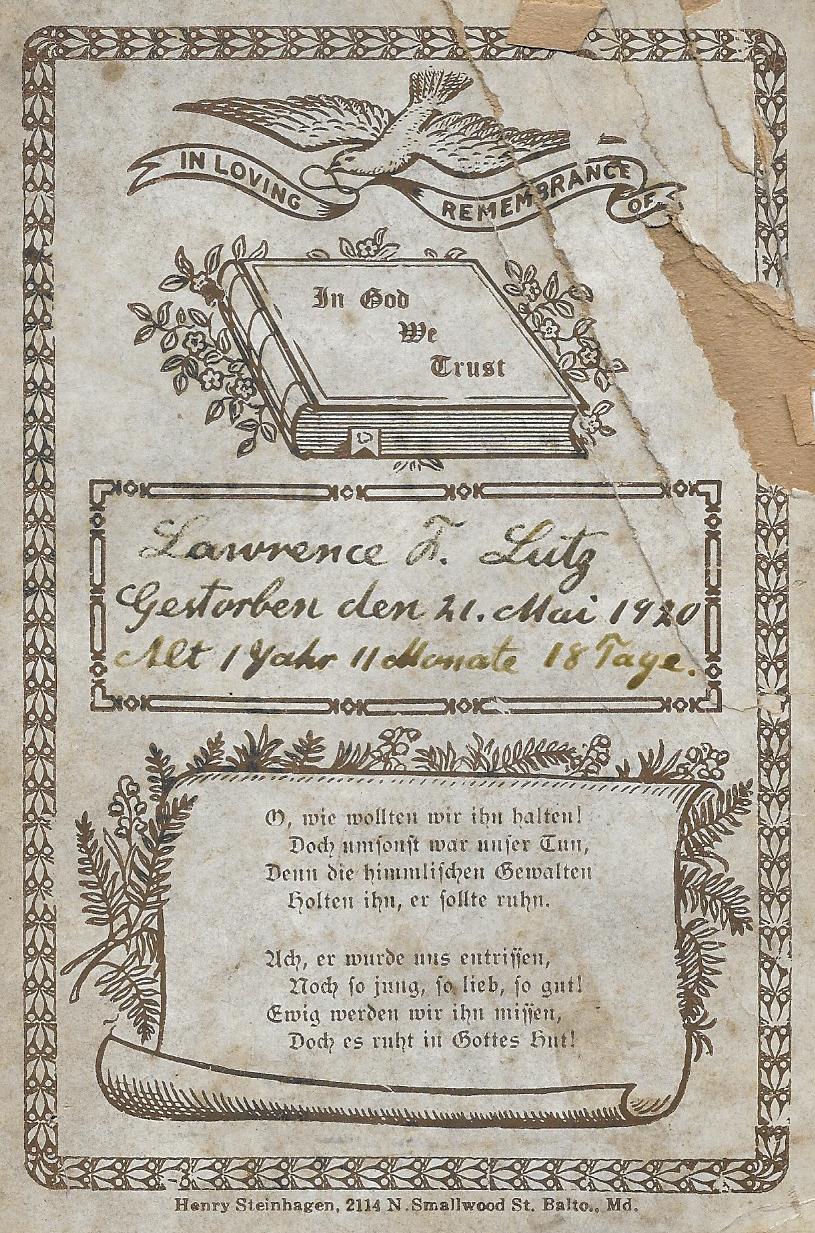 IN LOVING REMEMBRANCE OF
In God
We
Trust
Lawrence F. Lutz
Gestorben den 21. Mai 1920
Alt 1 Jahr 11 Monate 18 Tage.
O, wie wollten wir ihn halten!
Doch umsonst war unser Tun,
Denn die himmlischen Gewalten
Holten ihn, er sollte ruhn.
Ach, er wurde uns entrissen,
Noch so jung, so lieb, so gut!
Ewig werden wir ihn missen,
Doch es ruht in Gottes Hut!
Henry Steinhagen, 2114 N. Smallwood St. Balto., Md.